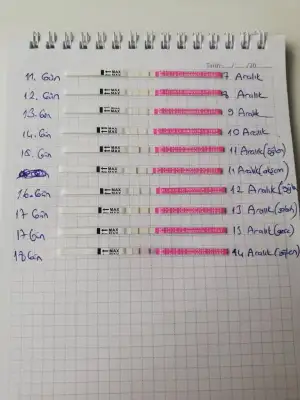 Tarih: / /20
11. Gün MAX 7 Aralık
12. Gün MAX 8 Aralık
13. Gün MAX 9 Aralık
14. Gün MAX 10 Aralık
15. Gün MAX 11 Aralık (öğlen)
MAX 11 Aralık (akşam)
16. Gün MAX 12 Aralık (öğlen)
17 Gün MAX 13 Aralık (sabah)
17 Gün MAX 13 Aralık (gece)
18 Gün MAX 14 Aralık (öğlen)